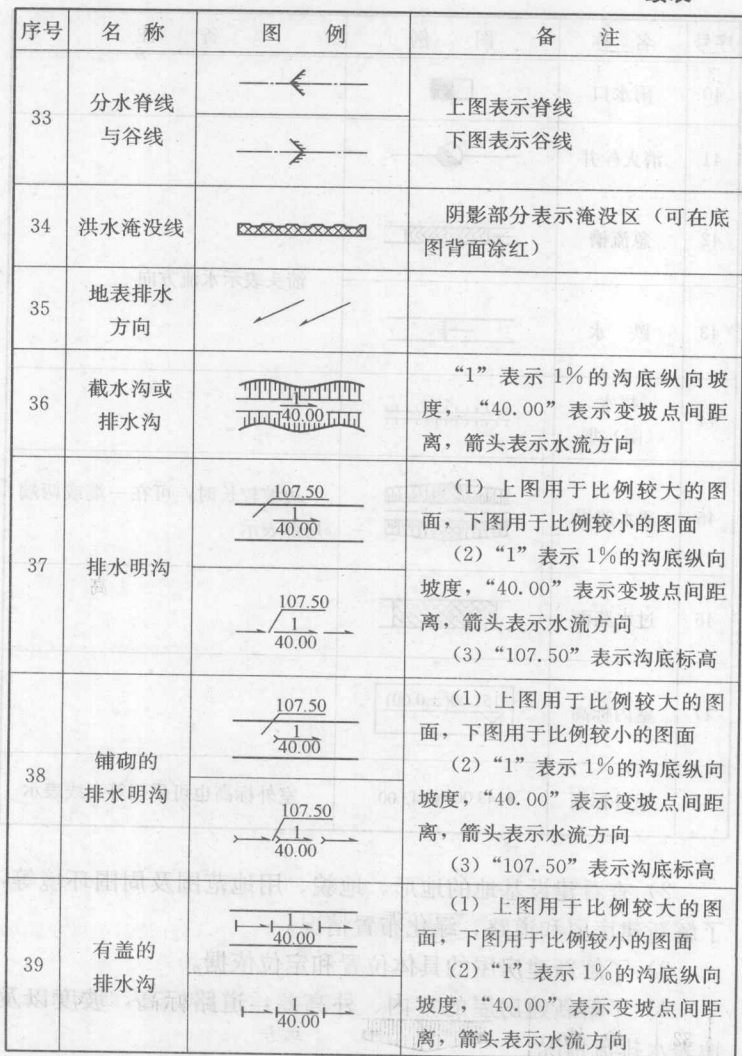 序号 名称 图例 备注
33
分水脊线
与谷线
上图表示脊线
下图表示谷线
34
洪水淹没线
阴影部分表示淹没区（可在底
图背面涂红）
35
地表排水
方向
36
截水沟或
排水沟
1
40.00
“1”表示1%的沟底纵向坡
度，“40.00”表示变坡点间距
离，箭头表示水流方向
37
排水明沟
107.50
1
40.00
107.50
1
40.00
（1）上图用于比例较大的图
面，下图用于比例较小的图面
（2）“1”表示1%的沟底纵向
坡度，“40.00”表示变坡点间距
离，箭头表示水流方向
（3）“107.50”表示沟底标高
38
铺砌的
排水明沟
107.50
1
40.00
107.50
1
40.00
（1）上图用于比例较大的图
面，下图用于比例较小的图面
（2）“1”表示1%的沟底纵向
坡度，“40.00”表示变坡点间距
离，箭头表示水流方向
（3）“107.50”表示沟底标高
39
有盖的
排水沟
1
40.00
1
40.00
（1）上图用于比例较大的图
面，下图用于比例较小的图面
（2）“1”表示1%的沟底纵向
坡度，“40.00”表示变坡点间距
离，箭头表示水流方向